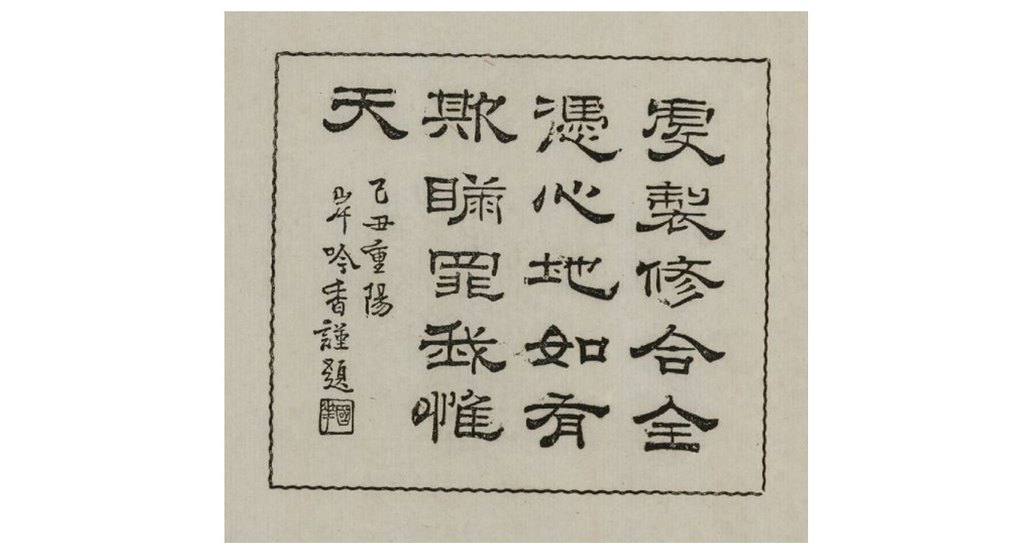 虔製修合全
憑心地如有
欺瞞罪我惟
天
己丑重陽
岸吟香謹題
國華